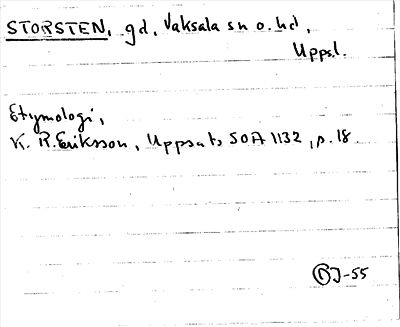 STORSTEN, gd, Vaksala sn o. hd,
Uppsl.
Etymologi,
K. R. Eriksson, Uppsats SOA 1132, s. 18.
BJ-55